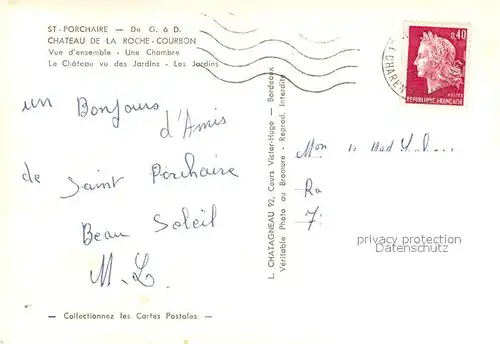 ST-PORCHAIRE — De G. à D.
CHATEAU DE LA ROCHE-COURBON
Vue d'ensemble - Une Chambre
Le Château vu des Jardins - Les Jardins
0,40
POSTES
REPUBLIQUE FRANÇAISE
un Bonjour
d'Amis
de Saint Porchaire
Beau Soleil
M.L
L. CHATAGNEAU 92, Cours Victor-Hugo — Bordeaux
Véritable Photo au Bromure - Reprod. Interdite
privacy protection
watermark
— Collectionnez les Cartes Postales —